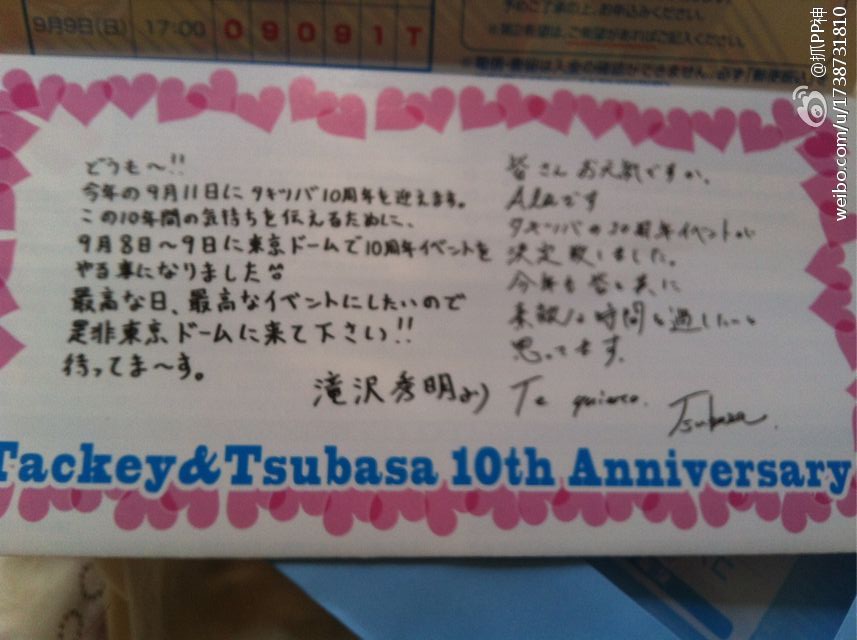 9月9日(日) 17:00 0 9 0 9 1 T
予のご了承の上、お申込みください。
※第2希望は、ご希望があればご記入ください。
@抓PP神
weibo.com/u/1738731810
どうも〜!!
今年の9月11日にタキツバ10周年を迎えます。
この10年間の気持ちを伝えるために、
9月8日〜9日に東京ドームで10周年イベントを
やる事になりました
最高な日、最高なイベントにしたいので
是非東京ドームに来て下さい!!
待ってま〜す。
滝沢秀明より
皆さんお元気ですか。
Alaです
タキツバの10周年イベントが
決定致しました。
今年も皆と共に
素敵な時間を過したいと
思ってます。
Te quiero. Tsubasa.
Tackey&Tsubasa 10th Anniversary